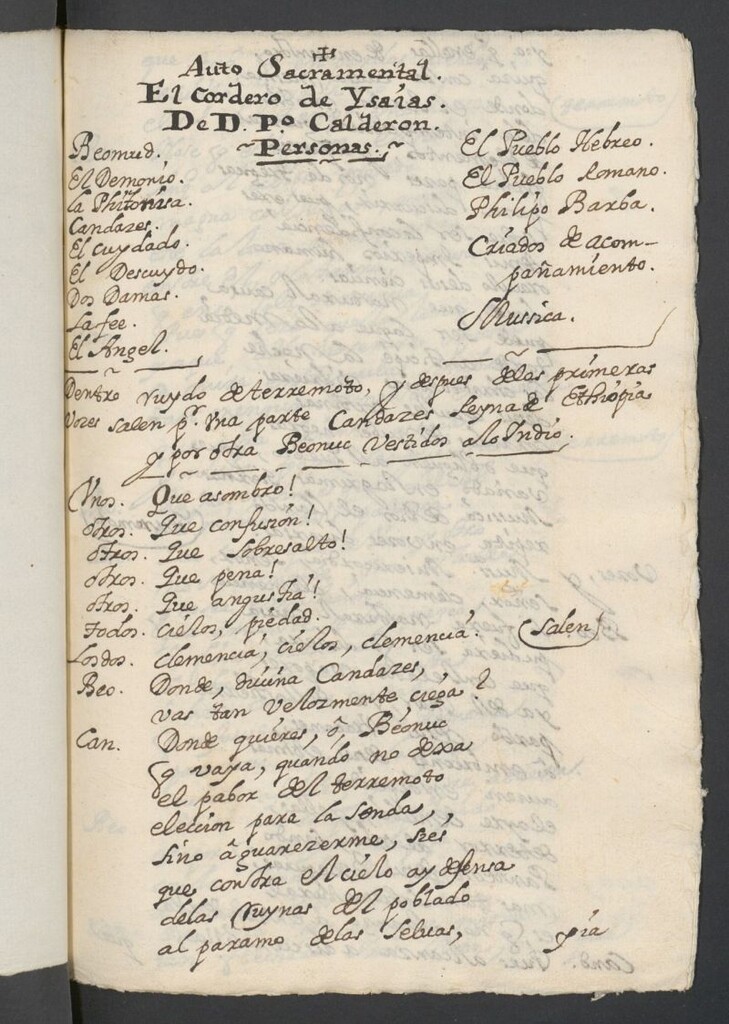 +
Auto Sacramental.
El Cordero de Ysaías.
De D. P.º Calderon.
~Personas.~
Beomud.
El Demonio.
la Phitonisa.
Candazes.
El cuydado.
El Descuydo.
Dos Damas.
La fee.
El Angel.
El Pueblo Hebreo.
El Pueblo Romano.
Philipo Barba.
Criados de acom-
pañamiento.
Mussica.
Dentro ruydo de terremoto, y despues de las primeras
vozes salen pr. vna parte Candazes Reyna de Ethiopia
y por otra Beonuc vestidos a lo Indio.
Vnos. Que asombro!
otros. Que confusion!
otros. Que sobresalto!
otros. Que pena!
otros. Que angustia!
todos. cielos, piedad.
Los dos. clemencia, cielos, clemencia. (salen)
Beo. Donde, diuina Candazes,
vas tan velozmente ciega?
Can. Donde quieres, ô, Beonuc
q vaya, quando no dexa
el pabor del terremoto
eleccion para la senda,
sino â guarezerme, si es
que contra el cielo ay defensa
delas ruynas del poblado
al paramo de las seluas,
pia